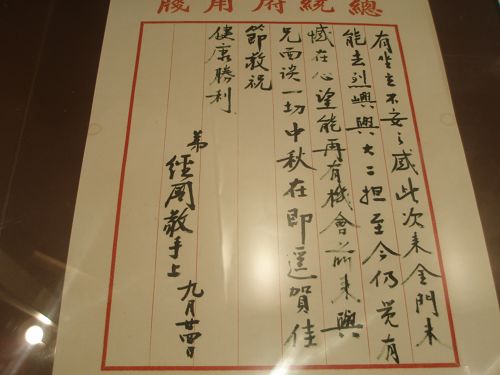 總統府用牋
有坐立不安之感此次來金門未
能去烈嶼與大二担至今仍覺有
憾在心望能再有機會前來與
兄面谈一切中秋在即遥賀佳
節敬祝
健康勝利
弟
經國敬手上
九月廿四日